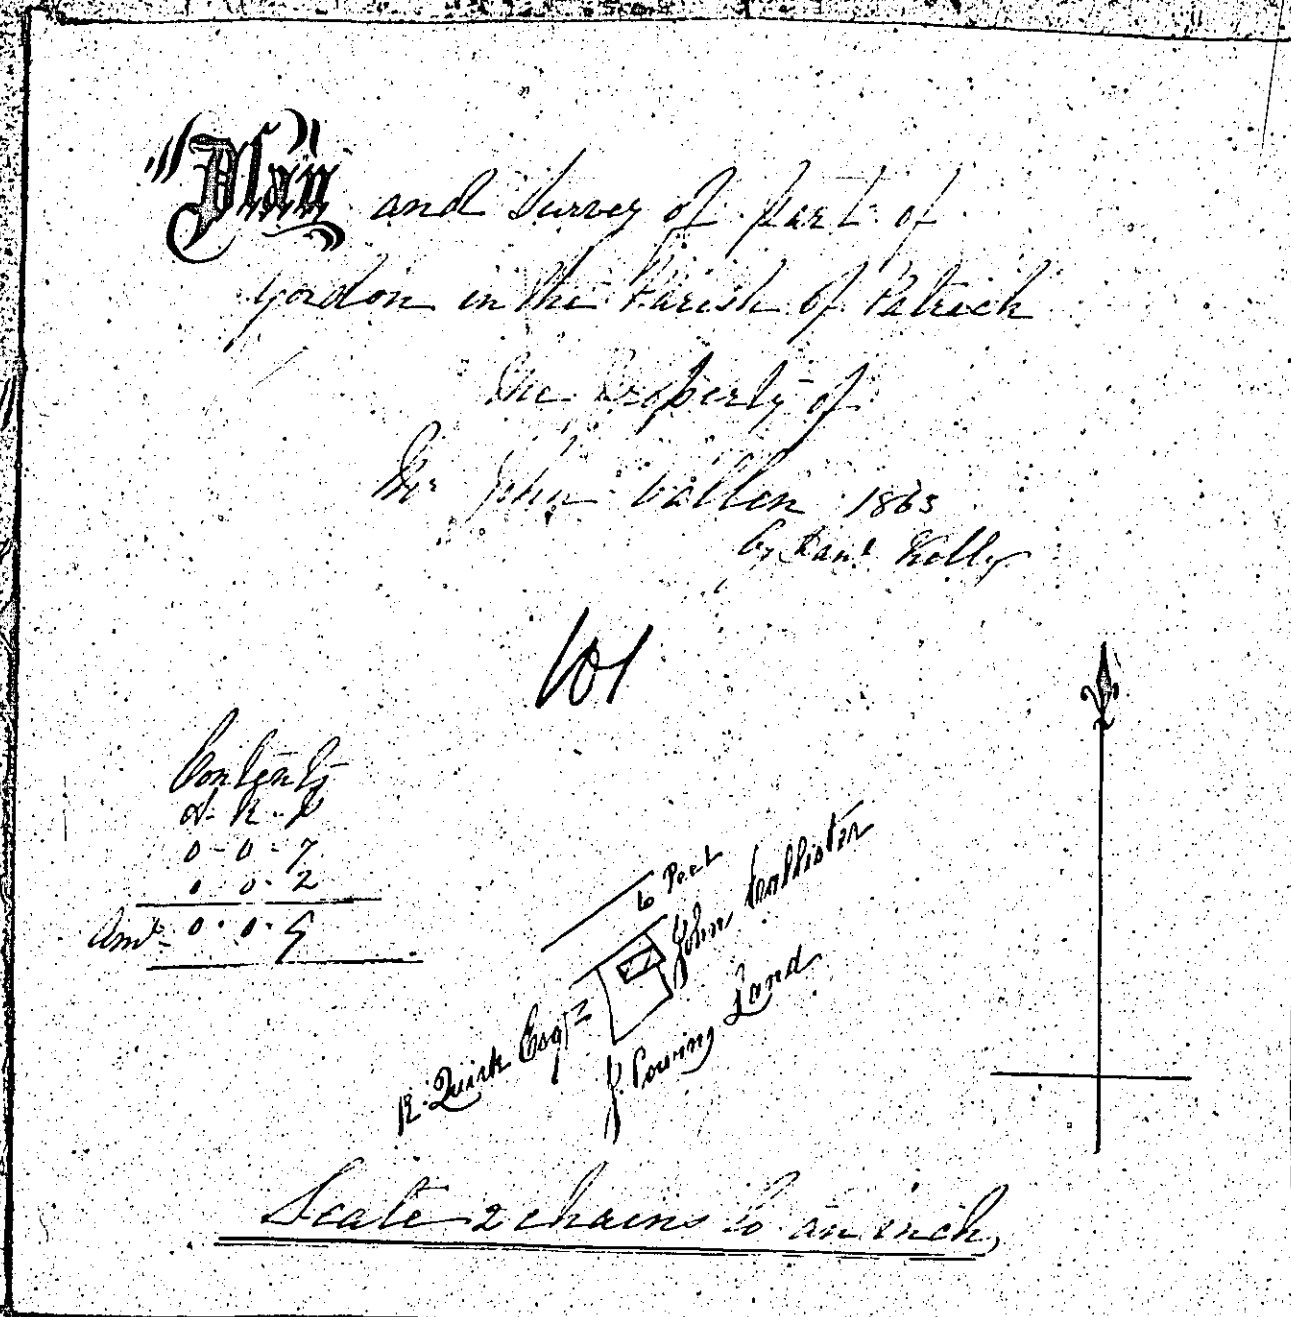 Plan and Survey of part of
Gordon in the Parish of Patrick
the Property of
Mr John Callen 1863
by Danl Kelly
101
Contents
A- R- P
0-0-7
0 0-2
Amt- 0-0-9
to Peel
John Callister
R. Quirk Esqre
J. Cowing Land
Scale 2 chains to an inch,